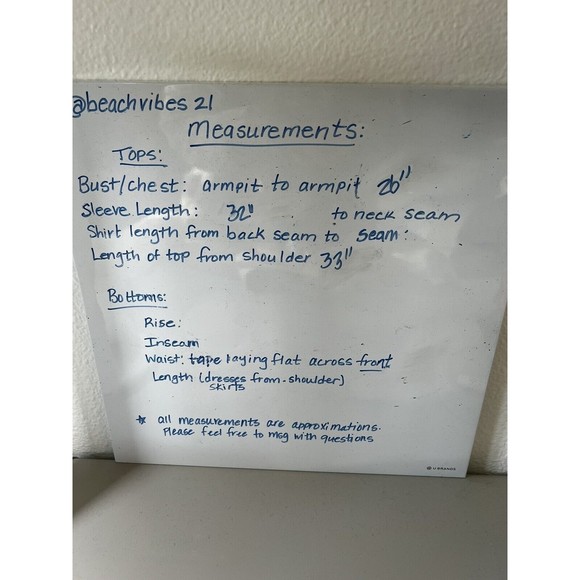 @beachvibes 21
Measurements:
Tops:
Bust/chest: armpit to armpit 26"
Sleeve Length: 32" to neck seam
Shirt length from back seam to seam:
Length of top from shoulder 33"
Bottoms:
Rise:
Inseam
Waist: tape laying flat across front
Length (dresses from shoulder)
skirts
* all measurements are approximations.
Please feel free to msg with questions
U BRANDS